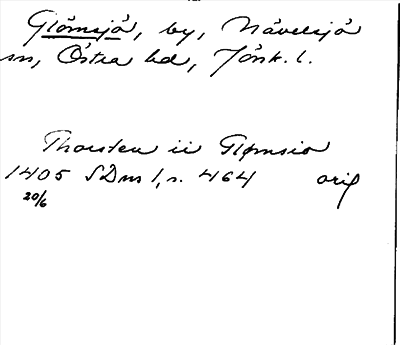 Glömsjö, by, Nävelsjö
sn, Östra hd, Jönk. l.
Thorsten ii Glømsio
1405 SDns 1, s. 464 orig
20/6